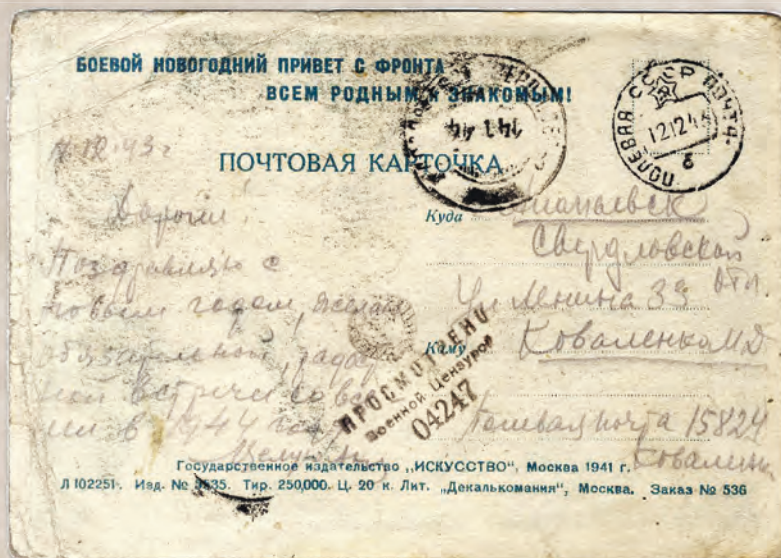 БОЕВОЙ НОВОГОДНИЙ ПРИВЕТ С ФРОНТА
ВСЕМ РОДНЫМ И ЗНАКОМЫМ!
ПОЛЕВАЯ ПОЧТА
СССР
12 12 43
б
14 1 44
12.43 г
ПОЧТОВАЯ КАРТОЧКА
Дорогие!
Поздравляю с
новым годом, желаю
обязательной, радост
ной встречи со все
ми в 1944 году
Целую
Куда
Свердловской
Ул Ленина 33
Кому
Коваленко М Д
ПРОСМОТРЕНО
Военной Цензурой
04247
Полевая почта 15824
Коваленко
Государственное издательство „ИСКУССТВО", Москва 1941 г.
Л 102251. Изд. № 9835. Тир. 250,000. Ц. 20 к. Лит. „Декалькомания", Москва. Заказ № 536